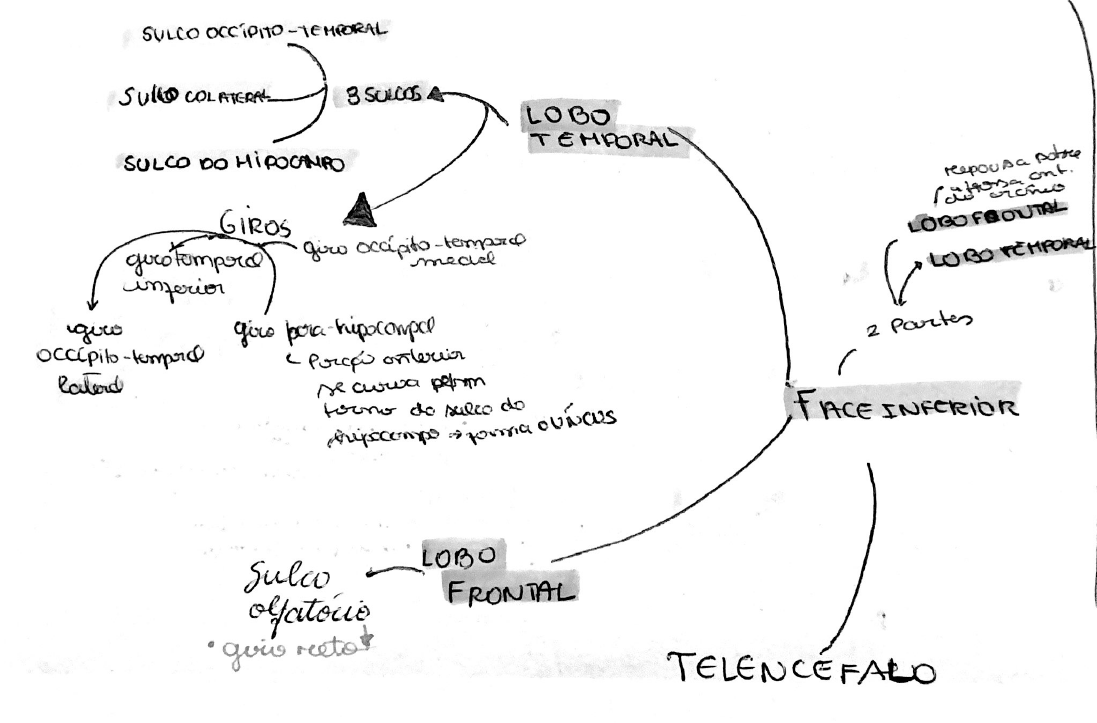 SULCO OCCÍPITO-TEMPORAL
SULCO COLATERAL
SULCO DO HIPOCAMPO
3 SULCOS
LOBO
TEMPORAL
GIROS
giro occípito-temporal
medial
giro temporal
inferior
giro
occípito-temporal
lateral
giro para-hipocampal
Porção anterior
se curva
torno do sulco do
hipocampo → forma o ÚNCUS
repousa sobre
a fossa ant.
do crânio
LOBO FRONTAL
LOBO TEMPORAL
2 Partes
FACE INFERIOR
LOBO
FRONTAL
Sulco
olfatório
• giro reto
TELENCÉFALO